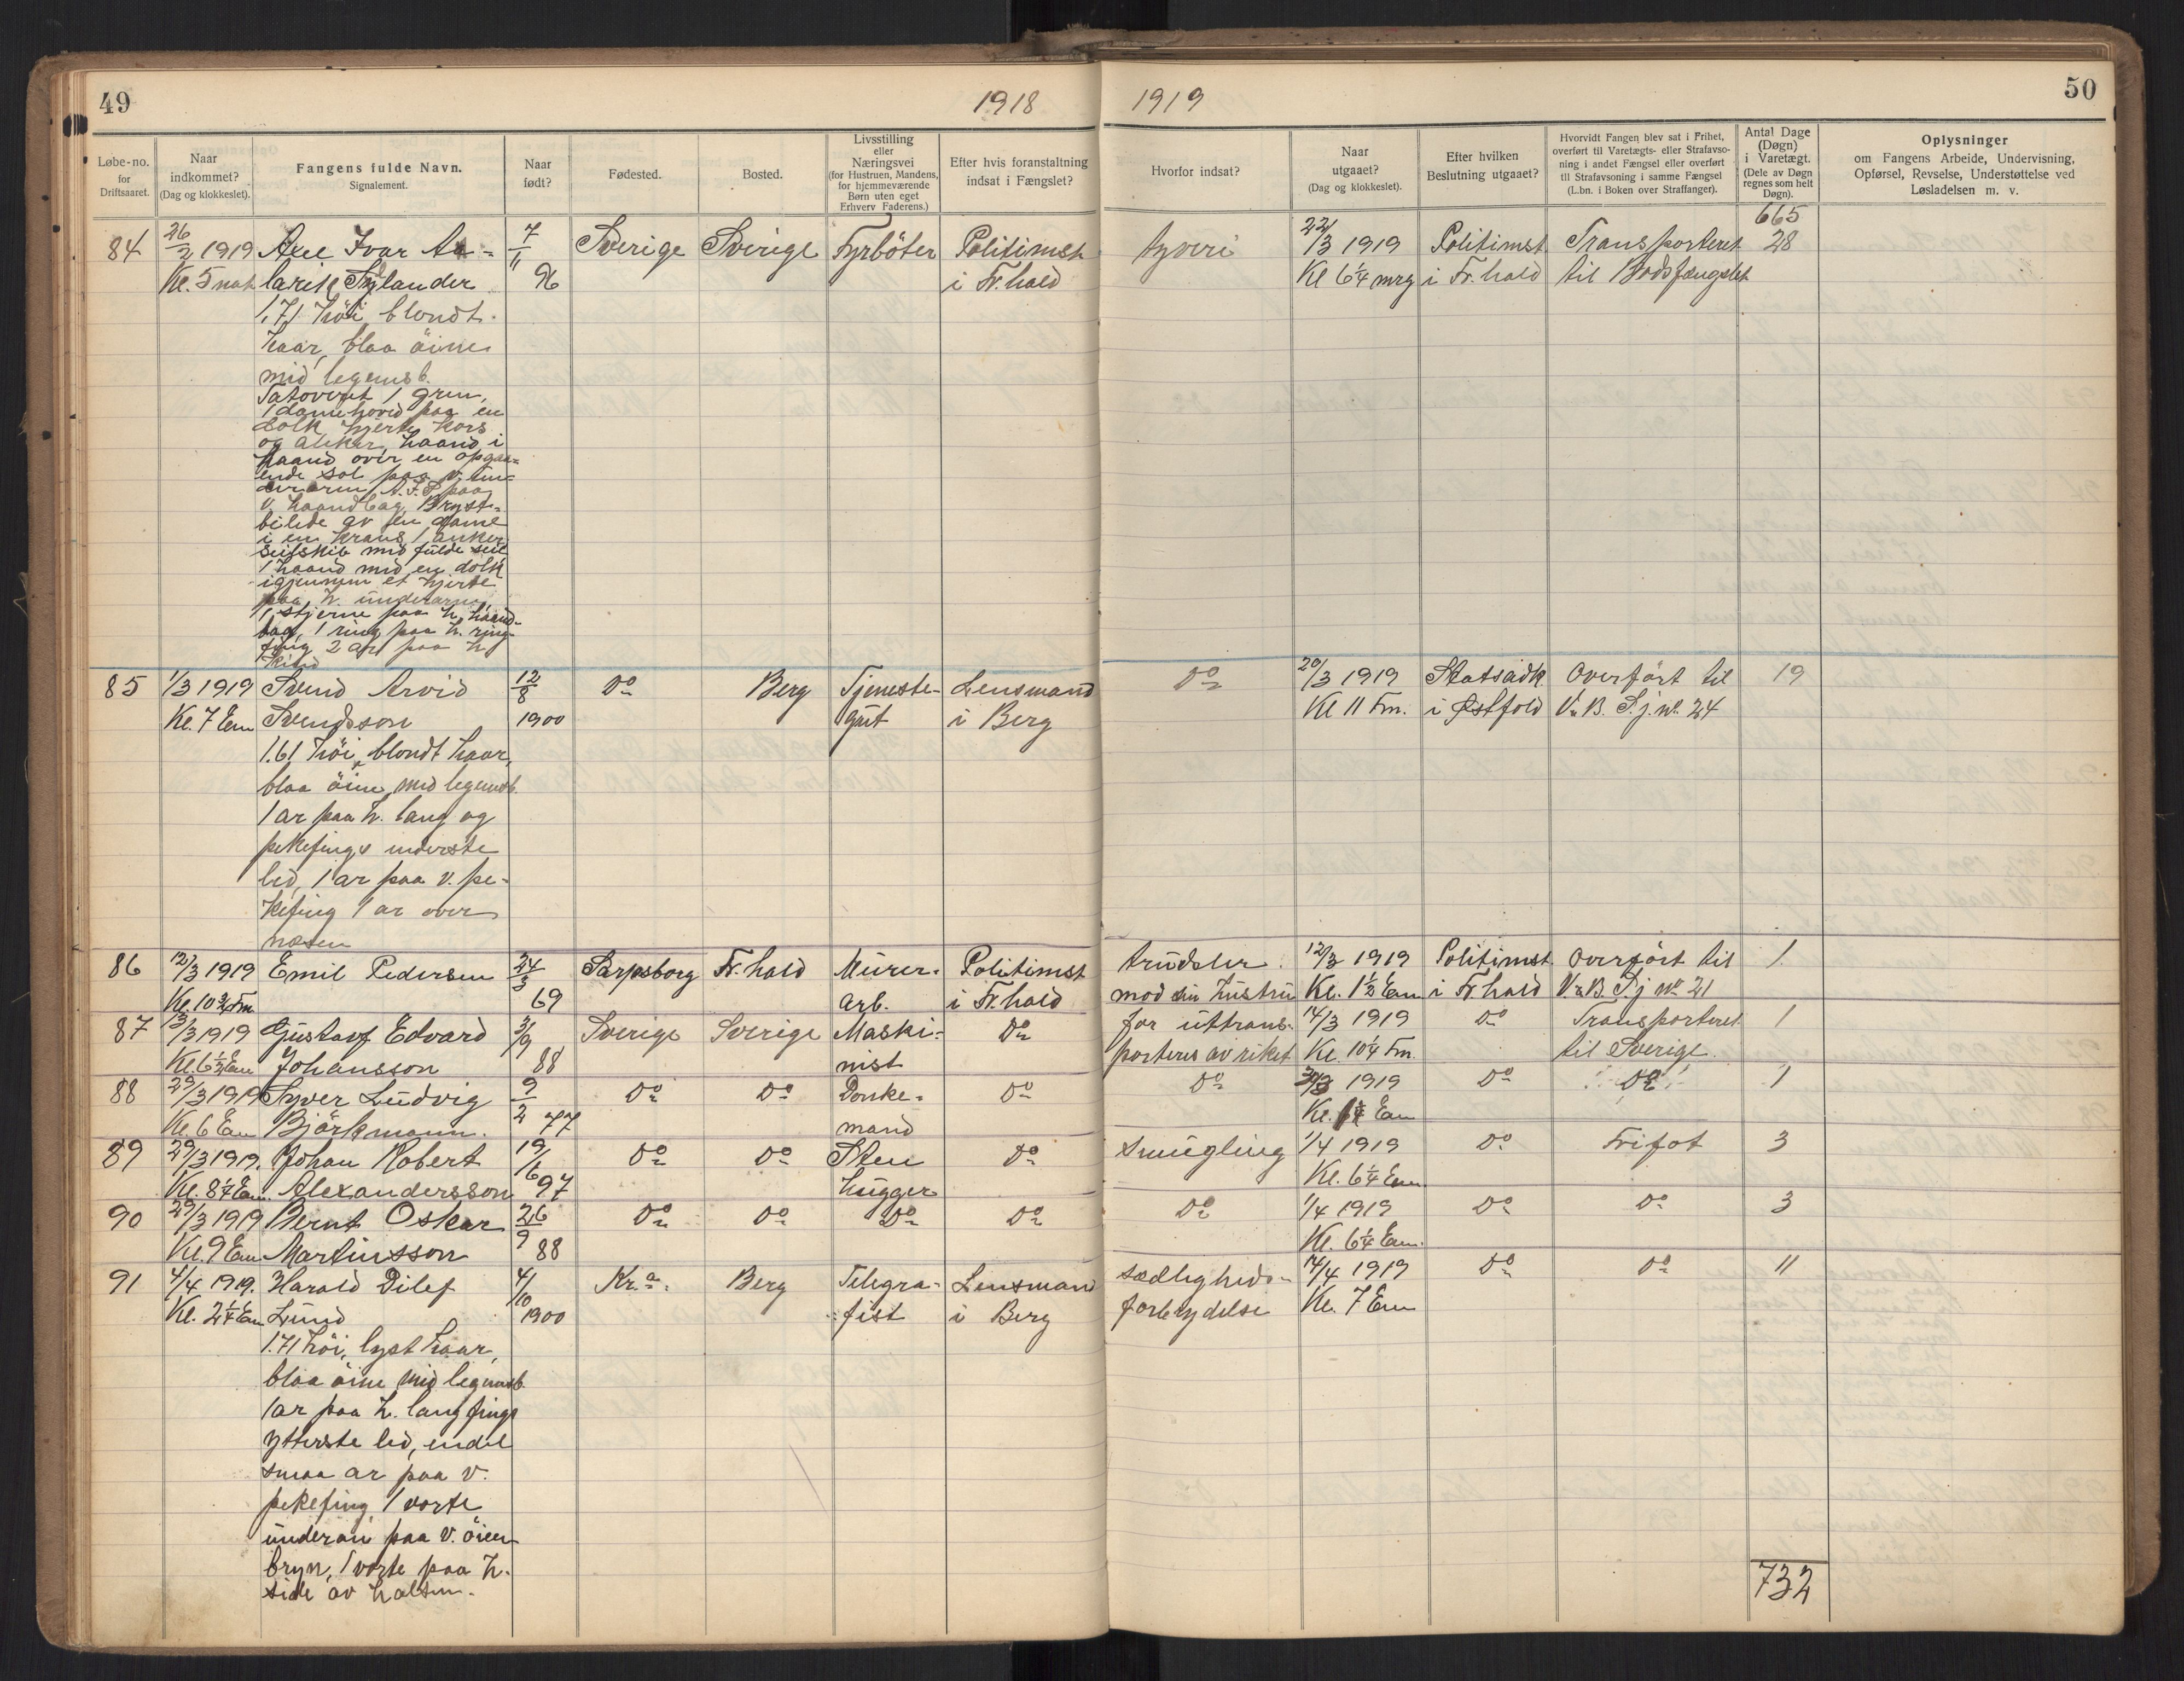 49
1918
1919
50
Løbe-no. for Driftsaaret.
Naar indkommet? (Dag og klokkeslet).
Fangens fulde Navn. Signalement.
Naar født?
Fødested.
Bosted.
Livsstilling eller Næringsvei (for Hustruen, Mandens, for hjemmeværende Børn uten eget Erhverv Faderens.)
Efter hvis foranstaltning indsat i Fængslet?
Hvorfor indsat?
Naar utgaaet? (Dag og klokkeslet).
Efter hvilken Beslutning utgaaet?
Hvorvidt Fangen blev sat i Frihet, overført til Varetægts- eller Strafavsoning i andet Fængsel eller overført til Strafavsoning i samme Fængsel (L.bn. i Boken over Straffanger).
Antal Dage (Døgn) i Varetægt. (Dele av Døgn regnes som helt Døgn).
Oplysninger om Fangens Arbeide, Undervisning, Opførsel, Revselse, Understøttelse ved Løsladelsen m. v.
665
84 26/2 1919 Axel Ivar 7/11 Sverige Sverige Fyrböter Politimst. tyveri 22/3 1919 Politimst. Transporteret 28
Kl. 5 nat. 96 i Fr.hald Kl 6¼ mrg i Fr.hald til Bodsfængslet
1,71 höi, blondt
haar, blaa öine
mid legemsb.
Tatoveret 1 gren,
1 damehoved paa en
dolk hjerte kors
og anker, haand i
haand over en opgaa=
ende sol paa v. un=
derarm paa
v. haandbag, Bryst=
bilede av en dame
i en krans 1 anker
seilskib med fulde seil
1 haand med en dolk
igjennem et hjerte
paa h. underarm
1 stjerne paa h. haand=
bag, 1 ring paa h. ring=
fing 2 ar paa h.
kind
85 1/3 1919 Svend Arvid 12/8 Do Berg Tjeneste- Lensmand Do 20/3 1919 Statsadk. Overført til 19
Kl. 7 Em Svendsson 1900 gut i Berg Kl 11 Fm. i Østfold V. B. S.j. No. 24
1.61 höi, blondt haar,
blaa öine, mid legemsb.
1 ar paa h. lang og
pekefings inderste
led, 1 ar paa v. pe-
kefing 1 ar over
næsen
86 12/3 1919 Emil Pedersen 24/3 Sarpsborg Fr.hald Murer- Politimst trudsler 12/3 1919 Politimst. Overført til 1
Kl. 10¾ Fm 69 arb. i Fr.hald mod sin hustru Kl. 1½ Em i Fr.hald V. B. S.j No 21
87 13/3 1919 Gustav Edvard 3/9 Sverige Sverige Maski- Do for uttrans- 14/3 1919 Do Transporteret 1
Kl. 6½ Em Johansson 88 nist porteres av riket Kl. 10¼ Fm. til Sverige.
88 29/3 1919 Syver Ludvig 9/2 Do Do Donke- Do Do 30/3 1919 Do Do 1
Kl. 6 Em Björkmann. 77 mand Kl. Em
89 29/3 1919. Johan Robert 19/6 Do Do Sten Do Smugling 1/4 1919 Do Frifot 3
Kl. 8¼ Em. Alexandersson 97 hugger Kl. 6¼ Em
90 29/3 1919 Bernt Oskar 26/9 Do Do Do Do Do 1/4 1919 Do Do 3
Kl. 9 Em Martinsson 88 Kl. 6¼ Em.
91 4/4 1919. Harald Dilef 4/10 Kr.a. Berg Telegra- Lensmand sædligheds- 14/4 1919 Do Do 11
Kl. 2¼ Em Lund 1900 fist i Berg forbrydelse Kl. 7 Em
1.71 höi, lyst haar,
blaa öine, mid legemsb.
1 ar paa h. lang fings
ytterste led, endel
smaa ar paa v.
pekefing, 1 vorte
underan paa v. öien
bryn, 1 vorte paa h.
side av halsen.
732